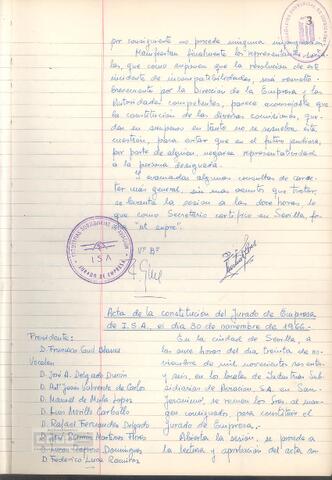 3
por consiguiente no procede ninguna impugnación.
Manifiestan finalmente los representantes
les, que como suponen que la resolución de este
incidente de incompatibilidades, será resuelto
brevemente por la Dirección de la Empresa y las
Autoridades competentes, parece aconsejable que
la constitución de las diversas comisiones, que-
den en suspenso en tanto no se resuelva esta
cuestión, para evitar que en el futuro pudiera,
por parte de alguien, negarse representatividad
a la persona designada.
Y evacuadas algunas consultas de carac-
ter más general, sin mas asuntos que tratar,
se levanta la sesión a las doce horas, lo
que como Secretario certifico en Sevilla, fha
"ut supra".
Vº Bº
ISA
JURADO DE EMPRESA
Acta de la constitución del Jurado de Empresa
de I.S.A., el día 30 de noviembre de 1966.-
Presidente:
En la ciudad de Sevilla, a
D. Francisco Guil Blanes
las once horas del día treinta de
Vocales:
noviembre de mil novecientos sesenta
D. José A. Delgado Durán
y seis, en los locales de Industrias Sub-
D. Antº Juan Valverde de Cortos
sidiarias de Aviación S.A. en San
D. Manuel de Mula Lopez
Jeronimo, se reunen los Sres. al mar-
D. Luis Morillo Carballo
gen consignados, para constituir el
D. Rafael Fernandez Delgado
Jurado de Empresa.-
D. José Román Martinez Flores
Abierta la sesión, se procede a
D. Lucas Dominguez
la lectura y aprobación del acta an-
D. Federico Luna Ramirez